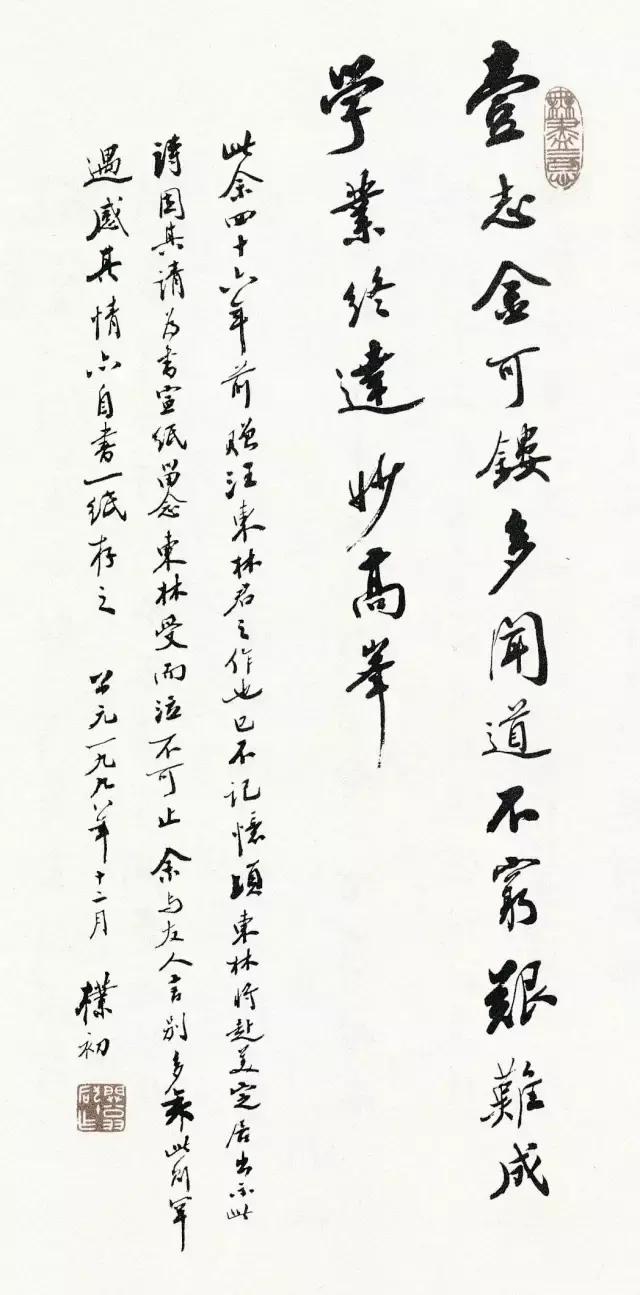 壹志金可鏤多聞道不窮艱難成
學業終達妙高峯
此余四十六年前贈汪東林君之作也已不記憶頃東林將赴美定居出示此
詩因其請為書宣紙留念東林受而泣不可止余与友人言别多矣此則罕
遇感其情亦自書一紙存之 公元一九九八年十二月 樸初
無盡意
開翁啟止